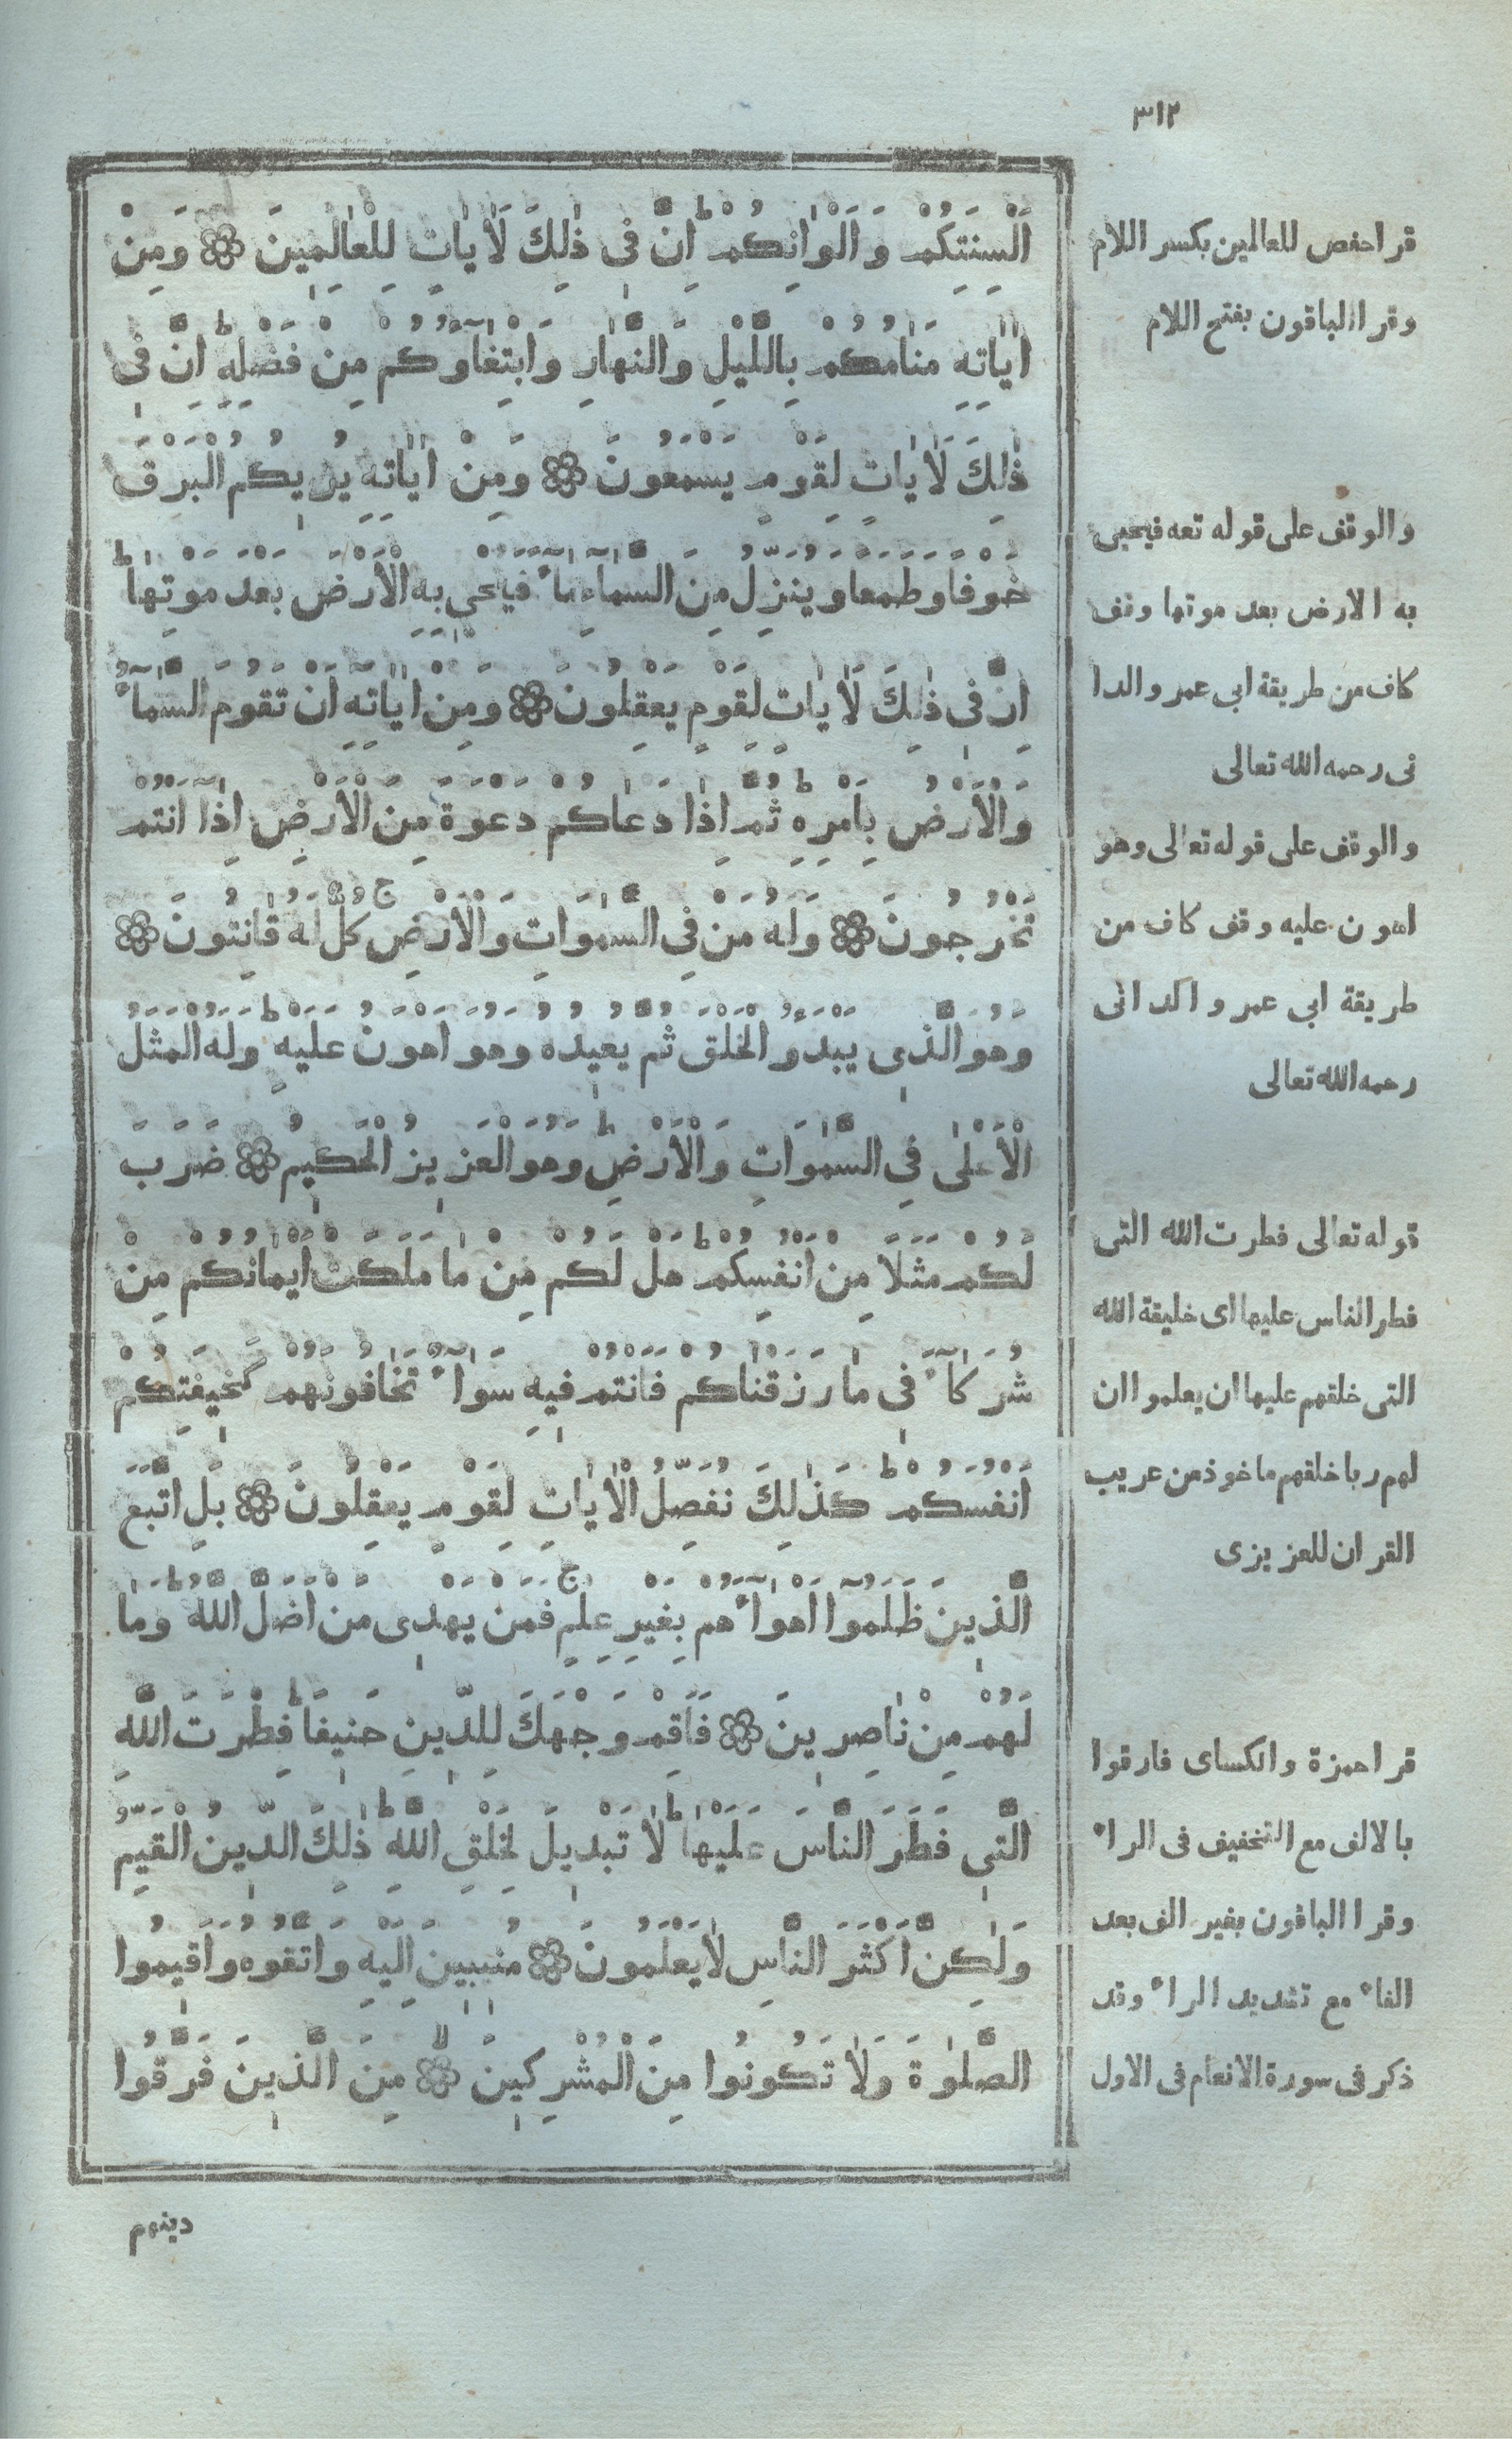 ٣١٢
اَلْسِنَتِكُمْ وَاَلْوَانِكُمْ ط اِنَّ فِى ذٰلِكَ لَاٰيَاتٍ لِلْعَالَمِينَ وَمِنْ
اٰيَاتِهِ مَنَامُكُمْ بِالَّيْلِ وَالنَّهَارِ وَابْتِغَآؤُكُمْ مِنْ فَضْلِهِ ط اِنَّ فِى
ذٰلِكَ لَاٰيَاتٍ لِقَوْمٍ يَسْمَعُونَ وَمِنْ اٰيَاتِهِ يُرِيكُمُ الْبَرْقَ
خَوْفًا وَطَمَعًا وَيُنَزِّلُ مِنَ السَّمَآءِ مَآءً فَيُحْيِ بِهِ الْاَرْضَ بَعْدَ مَوْتِهَا ط
اِنَّ فِى ذٰلِكَ لَاٰيَاتٍ لِقَوْمٍ يَعْقِلُونَ وَمِنْ اٰيَاتِهِ اَنْ تَقُومَ السَّمَآءُ
وَالْاَرْضُ بِاَمْرِهِ ط ثُمَّ اِذَا دَعَاكُمْ دَعْوَةً مِنَ الْاَرْضِ اِذَآ اَنْتُمْ
تَخْرُجُونَ وَلَهُ مَنْ فِى السَّمٰوَاتِ وَالْاَرْضِ ج كُلٌّ لَهُ قَانِتُونَ
وَهُوَ الَّذِى يَبْدَؤُ الْخَلْقَ ثُمَّ يُعِيدُهُ وَهُوَ اَهْوَنُ عَلَيْهِ ط وَلَهُ الْمَثَلُ
الْاَعْلٰى فِى السَّمٰوَاتِ وَالْاَرْضِ ط وَهُوَ الْعَزِيزُ الْحَكِيمُ ضَرَبَ
لَكُمْ مَثَلًا مِنْ اَنْفُسِكُمْ ط هَلْ لَكُمْ مِنْ مَا مَلَكَتْ اَيْمَانُكُمْ مِنْ
شُرَكَآءَ فِى مَا رَزَقْنَاكُمْ فَاَنْتُمْ فِيهِ سَوَآءٌ تَخَافُونَهُمْ كَخِيفَتِكُمْ
اَنْفُسَكُمْ ط كَذٰلِكَ نُفَصِّلُ الْاٰيَاتِ لِقَوْمٍ يَعْقِلُونَ بَلِ اتَّبَعَ
الَّذِينَ ظَلَمُوٓا اَهْوَآءَهُمْ بِغَيْرِ عِلْمٍ ج فَمَنْ يَهْدِى مَنْ اَضَلَّ اللّٰهُ ط وَمَا
لَهُمْ مِنْ نَاصِرِينَ فَاَقِمْ وَجْهَكَ لِلدِّينِ حَنِيفًا ط فِطْرَتَ اللّٰهِ
الَّتِى فَطَرَ النَّاسَ عَلَيْهَا ط لَا تَبْدِيلَ لِخَلْقِ اللّٰهِ ط ذٰلِكَ الدِّينُ الْقَيِّمُ
وَلٰكِنَّ اَكْثَرَ النَّاسِ لَا يَعْلَمُونَ مُنِيبِينَ اِلَيْهِ وَاتَّقُوهُ وَاَقِيمُوا
الصَّلٰوةَ وَلَا تَكُونُوا مِنَ الْمُشْرِكِينَ لا مِنَ الَّذِينَ فَرَّقُوا
دينهم
قرا حفص للعالمين بكسر اللام
وقرا الباقون بفتح اللام
والوقف على قوله تعه فيحيى
به الارض بعد موتها وقف
كاف من طريقة ابى عمر والدا
نى رحمه الله تعالى
والوقف على قوله تعالى وهو
اهون عليه وقف كاف من
طريقة ابى عمر والدانى
رحمه الله تعالى
قوله تعالى فطرت الله التى
فطر الناس عليها اى خليقة الله
التى خلقهم عليها ان يعلموا ان
لهم ربا خلقهم ماخوذ من غريب
القران للعزيزى
قرا حمزة والكساى فارقوا
بالالف مع التخفيف فى الراء
وقرا الباقون بغير الف بعد
الفاء مع تشديد الراء وقد
ذكر فى سورة الانعام فى الاول